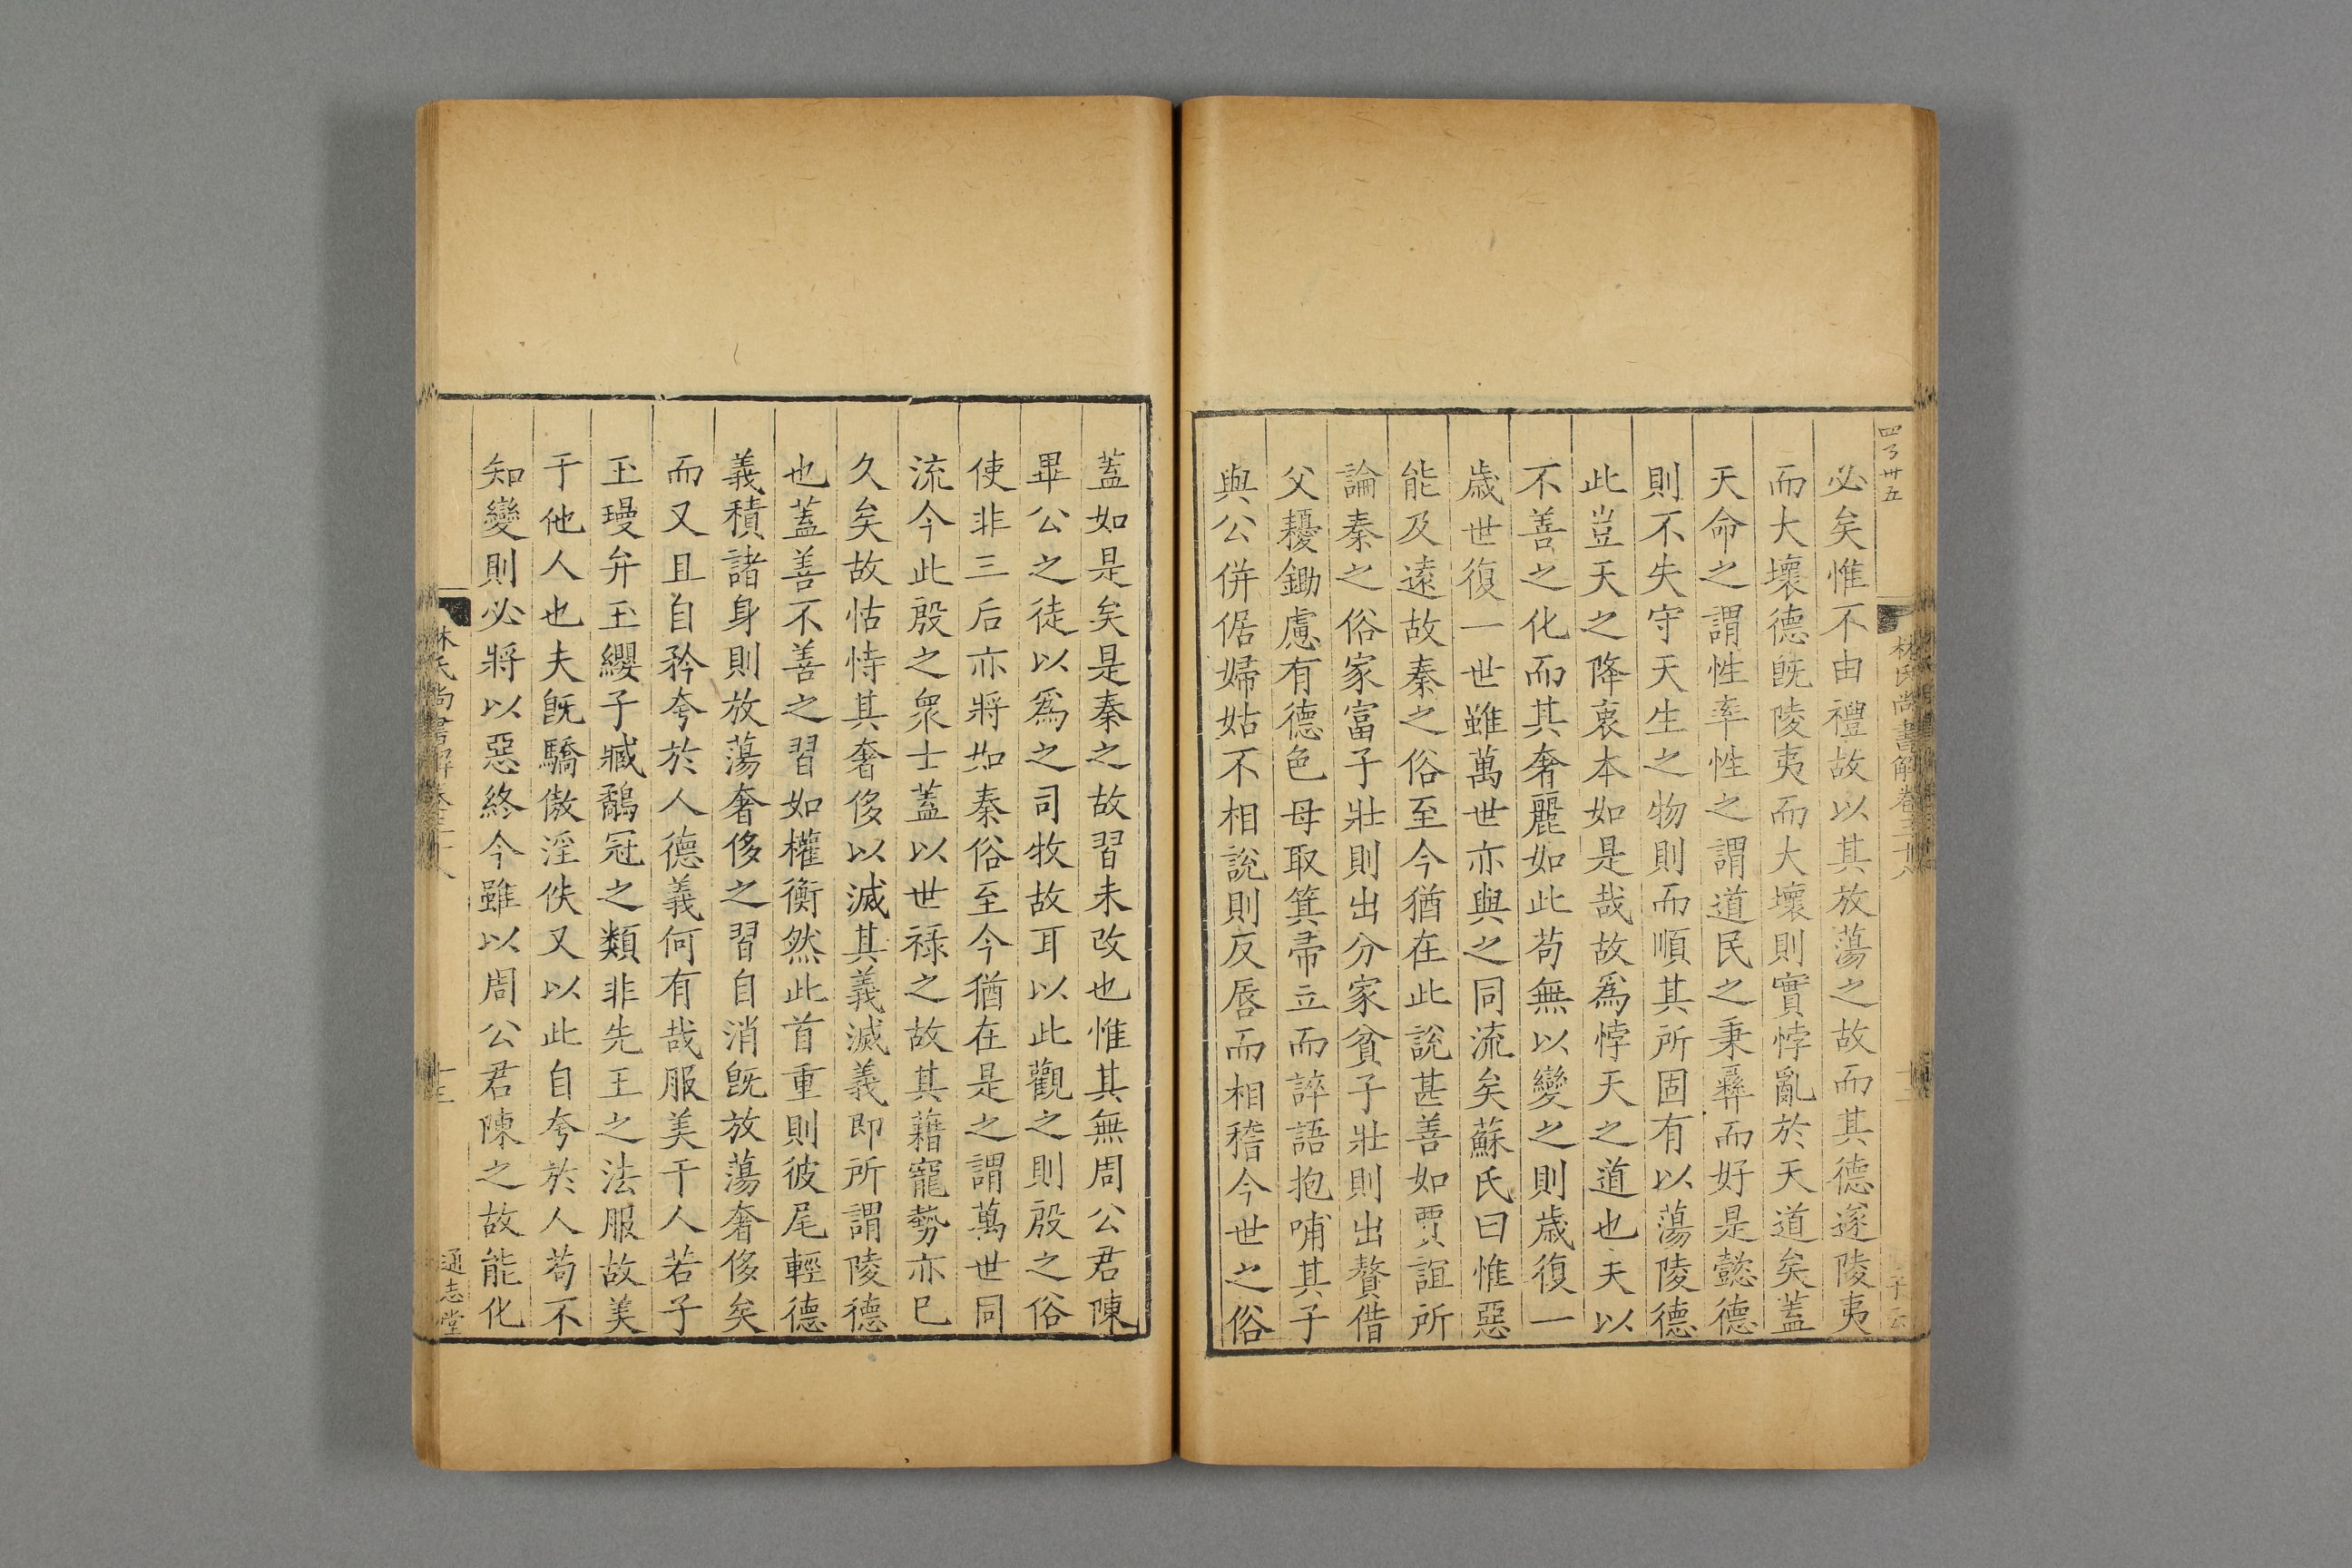 必矣惟不由禮故以其放蕩之故而其德遂陵夷
而大壞德旣陵夷而大壞則實悖亂於天道矣蓋
天命之謂性率性之謂道民之秉彝而好是懿德
則不失守天生之物則而順其所固有以蕩陵德
此豈天之降衷本如是哉故爲悖天之道也夫以
不善之化而其奢麗如此苟無以變之則歲復一
歲世復一世雖萬世亦與之同流矣蘇氏曰惟惡
能及遠故秦之俗至今猶在此說甚善如賈誼所
論秦之俗家富子壯則出分家貧子壯則出贅借
父耰鋤慮有德色母取箕帚立而誶語抱哺其子
與公併倨婦姑不相說則反脣而相稽今世之俗
蓋如是矣是秦之故習未改也惟其無周公君陳
畢公之徒以爲之司牧故耳以此觀之則殷之俗
使非三后亦將如秦俗至今猶在是之謂萬世同
流今此殷之眾士蓋以世祿之故其藉寵勢亦巳
久矣故怙恃其奢侈以滅其義滅義即所謂陵德
也蓋善不善之習如權衡然此首重則彼尾輕德
義積諸身則放蕩奢侈之習自消旣放蕩奢侈矣
而又且自矜夸於人德義何有哉服美于人若子
玉瓊弁玉纓子臧鷸冠之類非先王之法服故美
于他人也夫旣驕傲淫佚又以此自夸於人苟不
知變則必將以惡終今雖以周公君陳之故能化
林氏尚書解卷三十八
通志堂